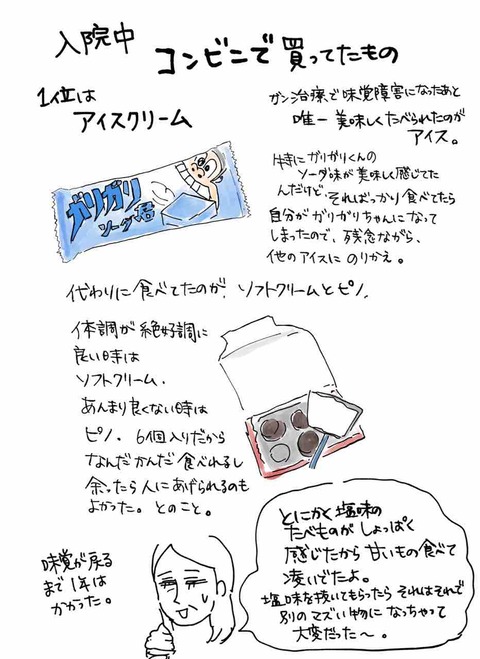 入院中
コンビニで買ってたもの
1位は
アイスクリーム
ガリガリ
ソーダ君
ガン治療で味覚障害になったあと
唯一美味しくたべられたのが
アイス。
特にガリガリくんの
ソーダ味が美味しく感じてた
んだけど、そればっかり食べてたら
自分がガリガリちゃんになって
しまったので、残念ながら、
他のアイスにのりかえ。
代わりに食べてたのが、ソフトクリームとピノ。
体調が絶好調に
良い時は
ソフトクリーム、
あんまり良くない時は
ピノ、6個入りだから
なんだかんだ食べれるし
余ったら人にあげられるのも
よかった。とのこと。
味覚が戻る
まで1年は
かかった。
とにかく塩味の
たべものがしょっぱく
感じたから甘いもの食べて
凌いでたよ。
塩味を抜いてもらったらそれはそれで
別のマズい物になっちゃって
大変だった〜。